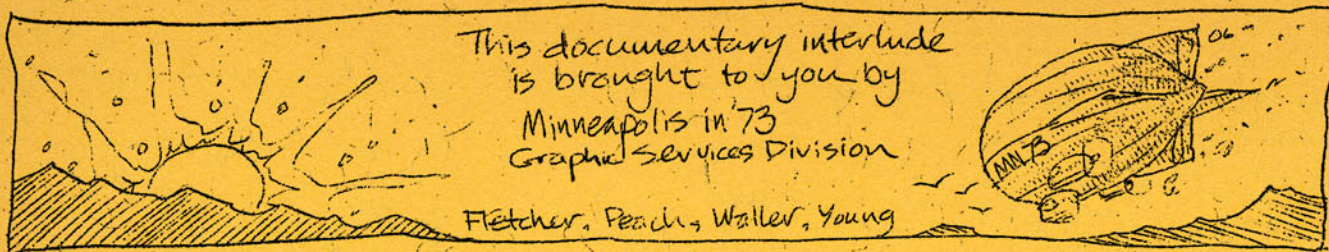 This documentary interlude
is brought to you by
Minneapolis in '73
Graphic Services Division
Fletcher, Peach, Waller, Young
MN 73
06